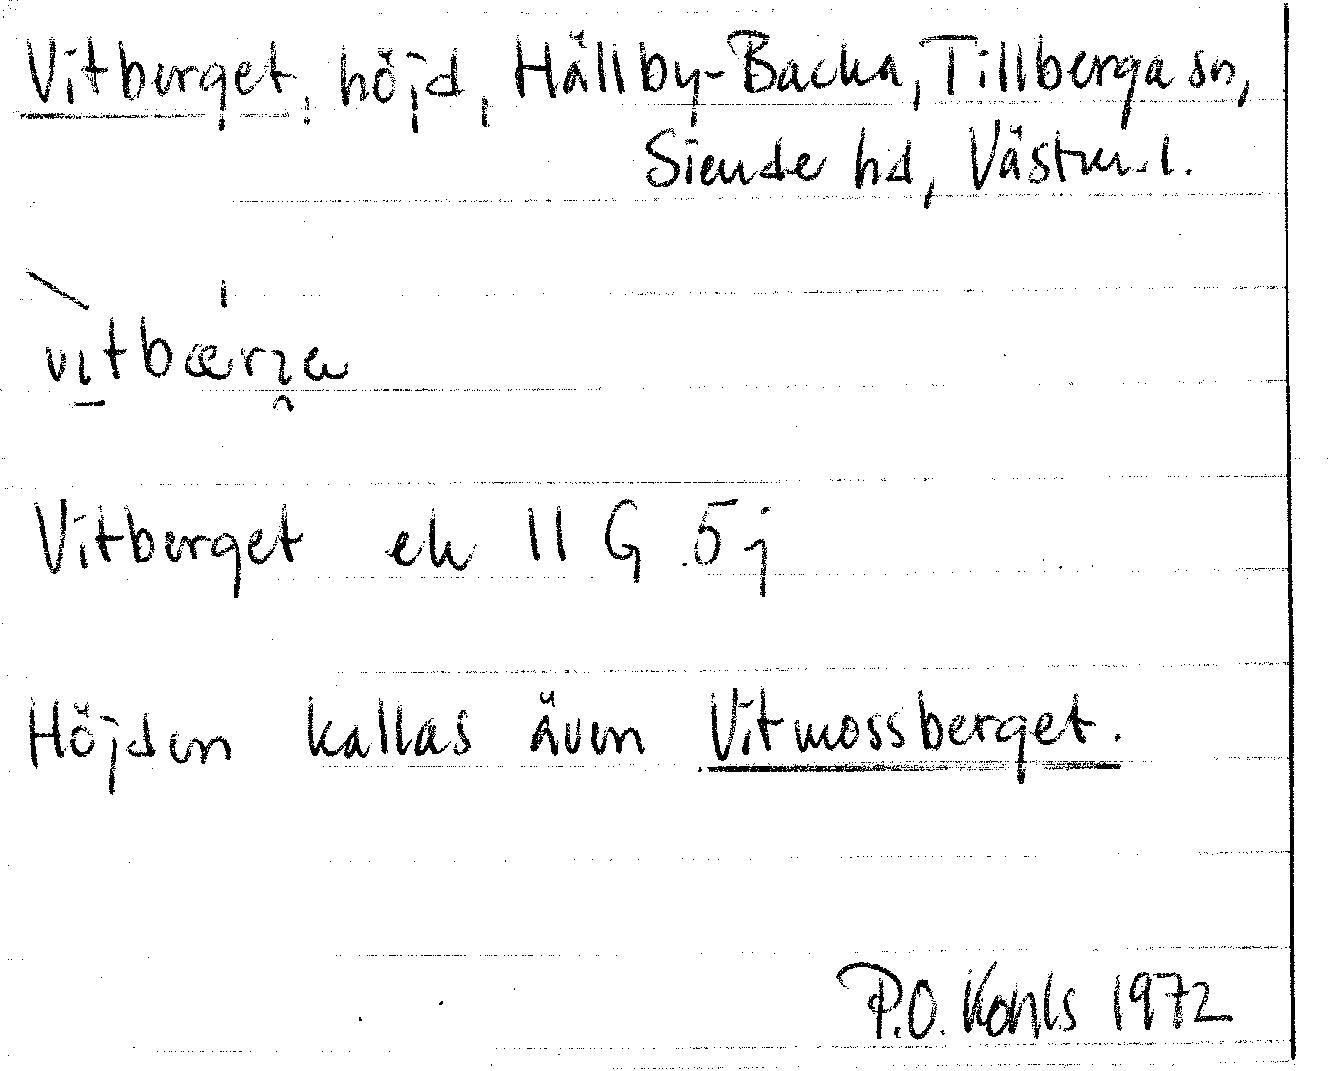 Vitberget, höjd, Hällby-Backa, Tillberga sn,
Siende hd, Västm. l.
vitbærja
Vitberget ek 11 G 5 j
Höjden kallas även Vitmossberget.
P.O. Kohls 1972